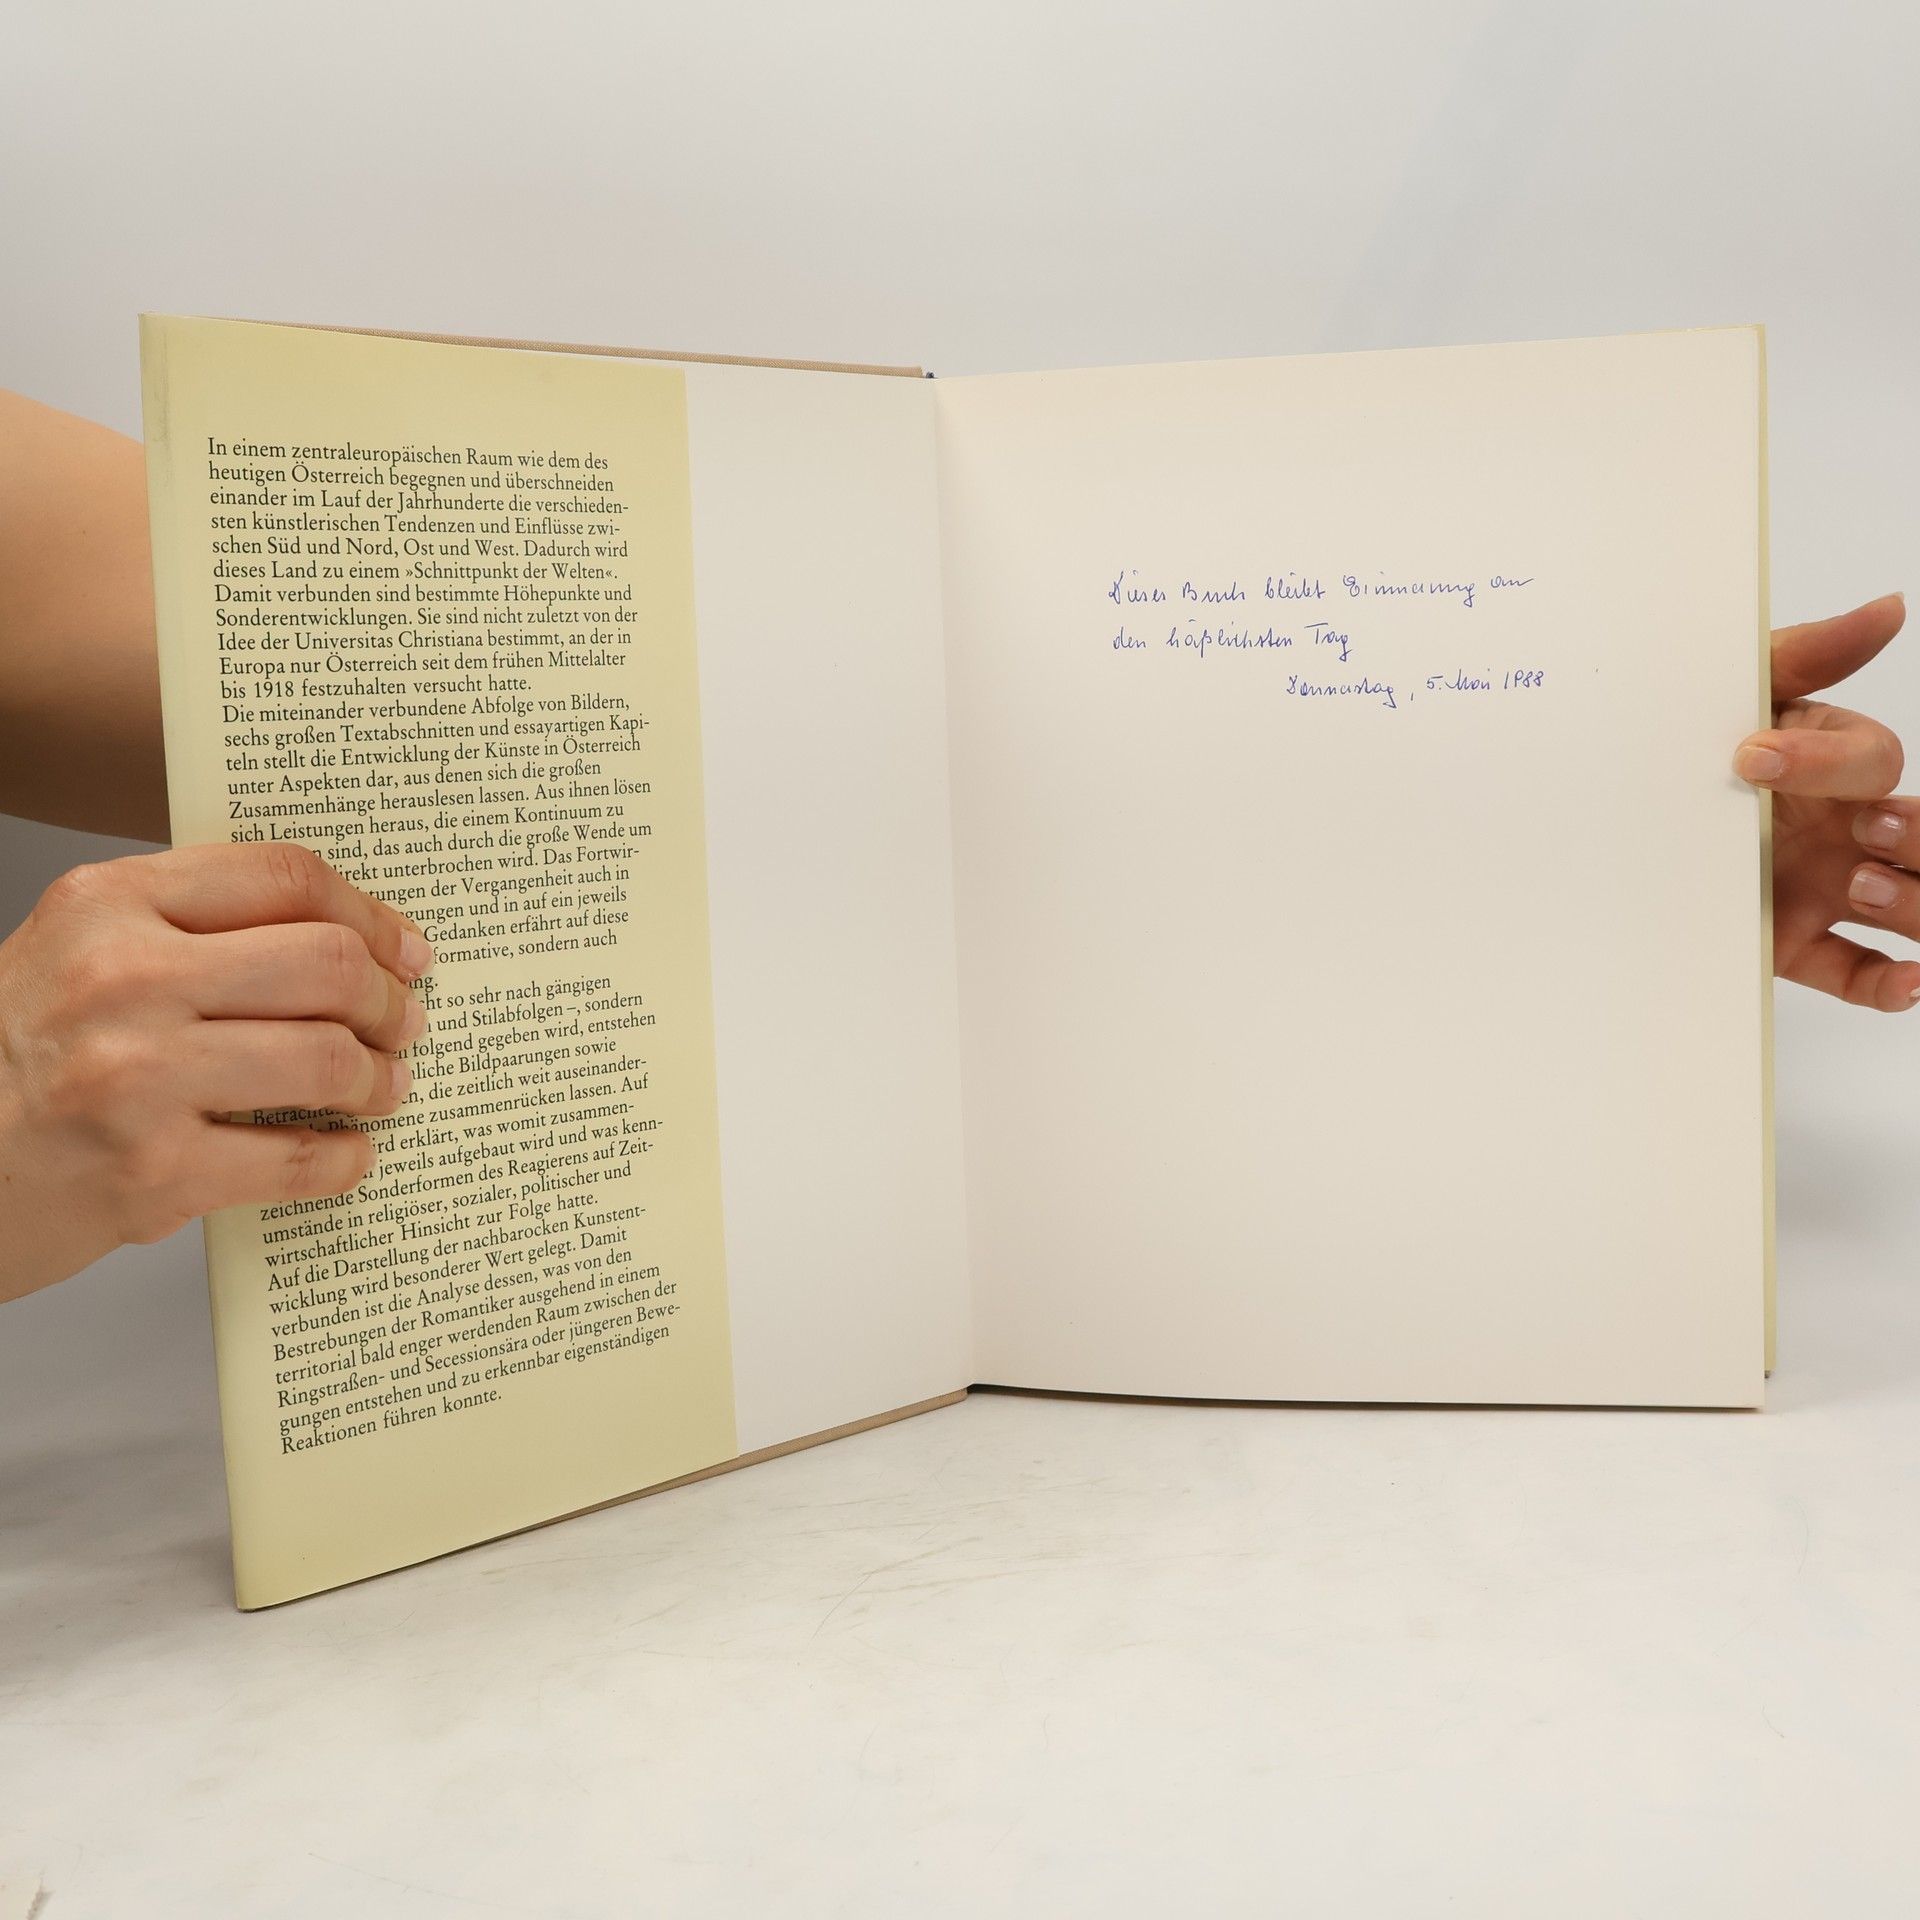 In einem zentraleuropäischen Raum wie dem des
heutigen Österreich begegnen und überschneiden
einander im Lauf der Jahrhunderte die verschieden-
sten künstlerischen Tendenzen und Einflüsse zwi-
schen Süd und Nord, Ost und West. Dadurch wird
dieses Land zu einem »Schnittpunkt der Welten«.
Damit verbunden sind bestimmte Höhepunkte und
Sonderentwicklungen. Sie sind nicht zuletzt von der
Idee der Universitas Christiana bestimmt, an der in
Europa nur Österreich seit dem frühen Mittelalter
bis 1918 festzuhalten versucht hatte.
Die miteinander verbundene Abfolge von Bildern,
sechs großen Textabschnitten und essayartigen Kapi-
teln stellt die Entwicklung der Künste in Österreich
unter Aspekten dar, aus denen sich die großen
Zusammenhänge herauslesen lassen. Aus ihnen lösen
sich Leistungen heraus, die einem Kontinuum zu
sind, das auch durch die große Wende um
unterbrochen wird. Das Fortwir-
der Vergangenheit auch in
und in auf ein jeweils
Gedanken erfährt auf diese
sondern auch
so sehr nach gängigen
und Stilabfolgen –, sondern
folgend gegeben wird, entstehen
Bildpaarungen sowie
die zeitlich weit auseinander-
Phänomene zusammenrücken lassen. Auf
erklärt, was womit zusammen-
jeweils aufgebaut wird und was kenn-
zeichnende Sonderformen des Reagierens auf Zeit-
umstände in religiöser, sozialer, politischer und
wirtschaftlicher Hinsicht zur Folge hatte.
Auf die Darstellung der nachbarocken Kunstent-
wicklung wird besonderer Wert gelegt. Damit
verbunden ist die Analyse dessen, was von den
Bestrebungen der Romantiker ausgehend in einem
territorial bald enger werdenden Raum zwischen der
Ringstraßen- und Secessionsära oder jüngeren Bewe-
gungen entstehen und zu erkennbar eigenständigen
Reaktionen führen konnte.
Dieses Buch bleibt Erinnerung an
den häßlichsten Tag
Donnerstag, 5. Mai 1988